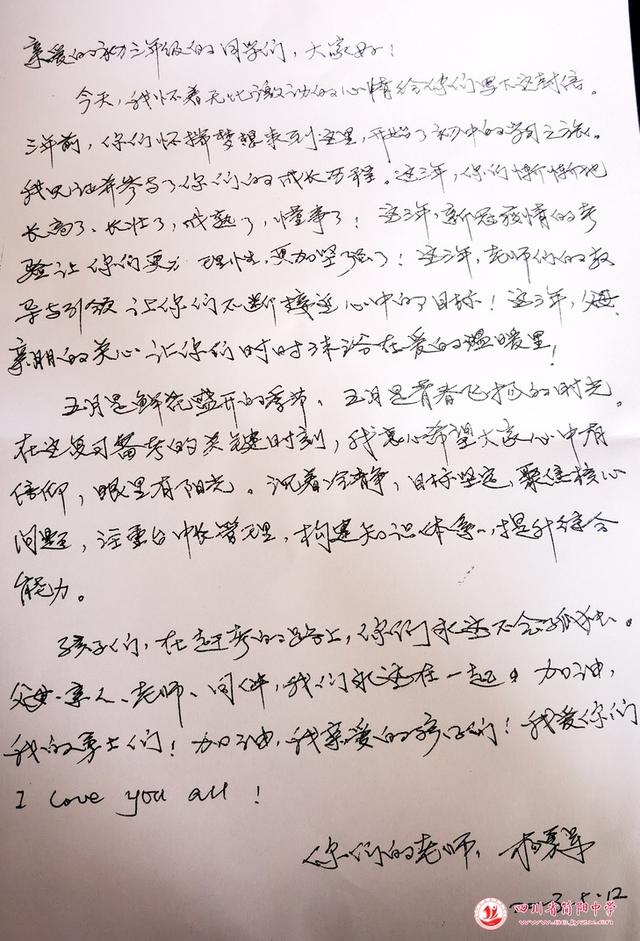 亲爱的初三年级的同学们，大家好！
今天，我怀着无比激动的心情给你们写下这封信。
三年前，你们怀揣梦想来到这里，开始了初中的学习之旅。
我见证并参与了你们的成长历程。这三年，你们渐渐地
长高了、长壮了，成熟了，懂事了！这三年，新冠疫情的考
验让你们更加理性，更加坚强了！这三年，老师们的教
导与引领让你们不断接近心中的目标！这三年，父母、
亲朋的关心让你们时时沐浴在爱的温暖里！
五月是鲜花盛开的季节，五月是青春飞扬的时光。
在这复习备考的关键时刻，我衷心希望大家心中有
信仰，眼里有阳光。沉着冷静，目标坚定，聚焦核心
问题，注重台中长管理，构建知识体系，提升综合
能力。
孩子们，在赶考的路上，你们永远不会孤独。
父母、亲人、老师、同伴，我们永远在一起。加油，
我的勇士们！加油，我亲爱的孩子们！我爱你们
I love you all！
你们的老师：
5.12
四川省简阳中学